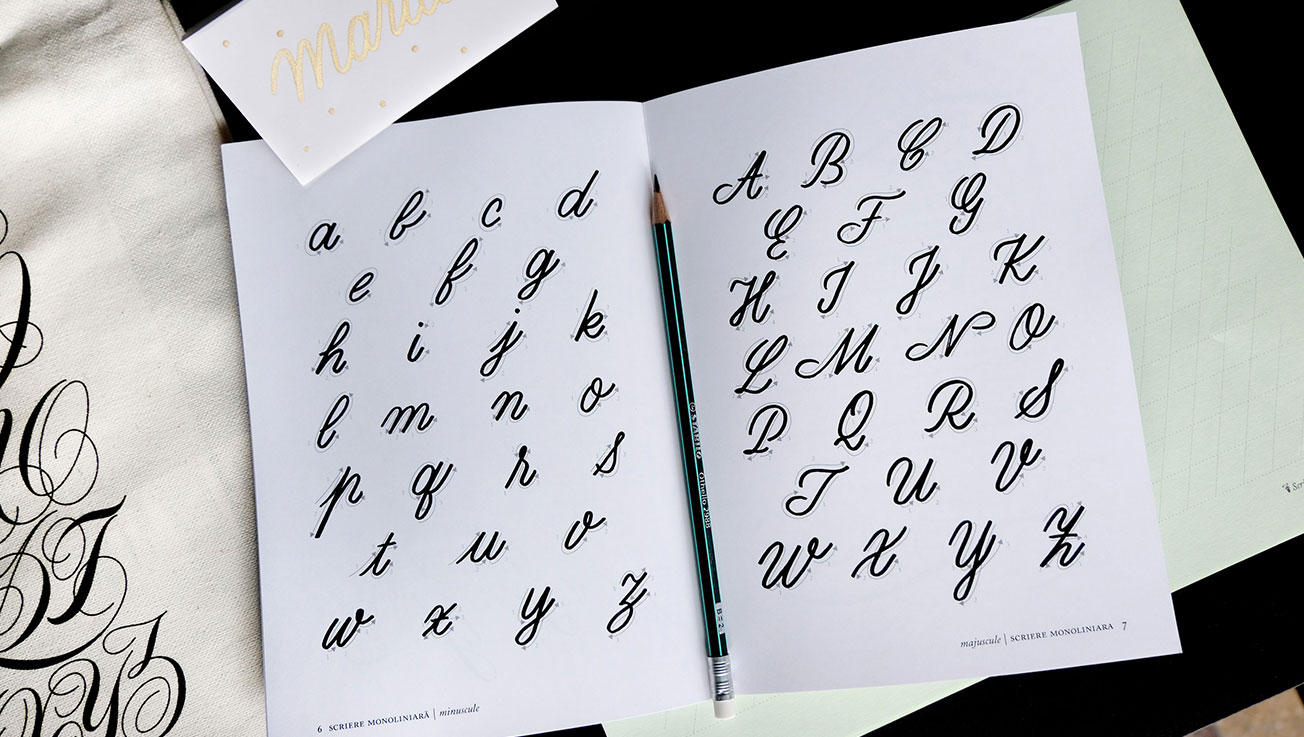 a b c d
e f g
h i j k
l m n o
p q r s
t u v
w x y z
6 SCRIERE MONOLINIARĂ | minuscule
A B C D
E F G
H I J K
L M N O
P Q R S
T U V
W X Y Z
majuscule | SCRIERE MONOLINIARA 7
STABILO Othello 2988
B=2